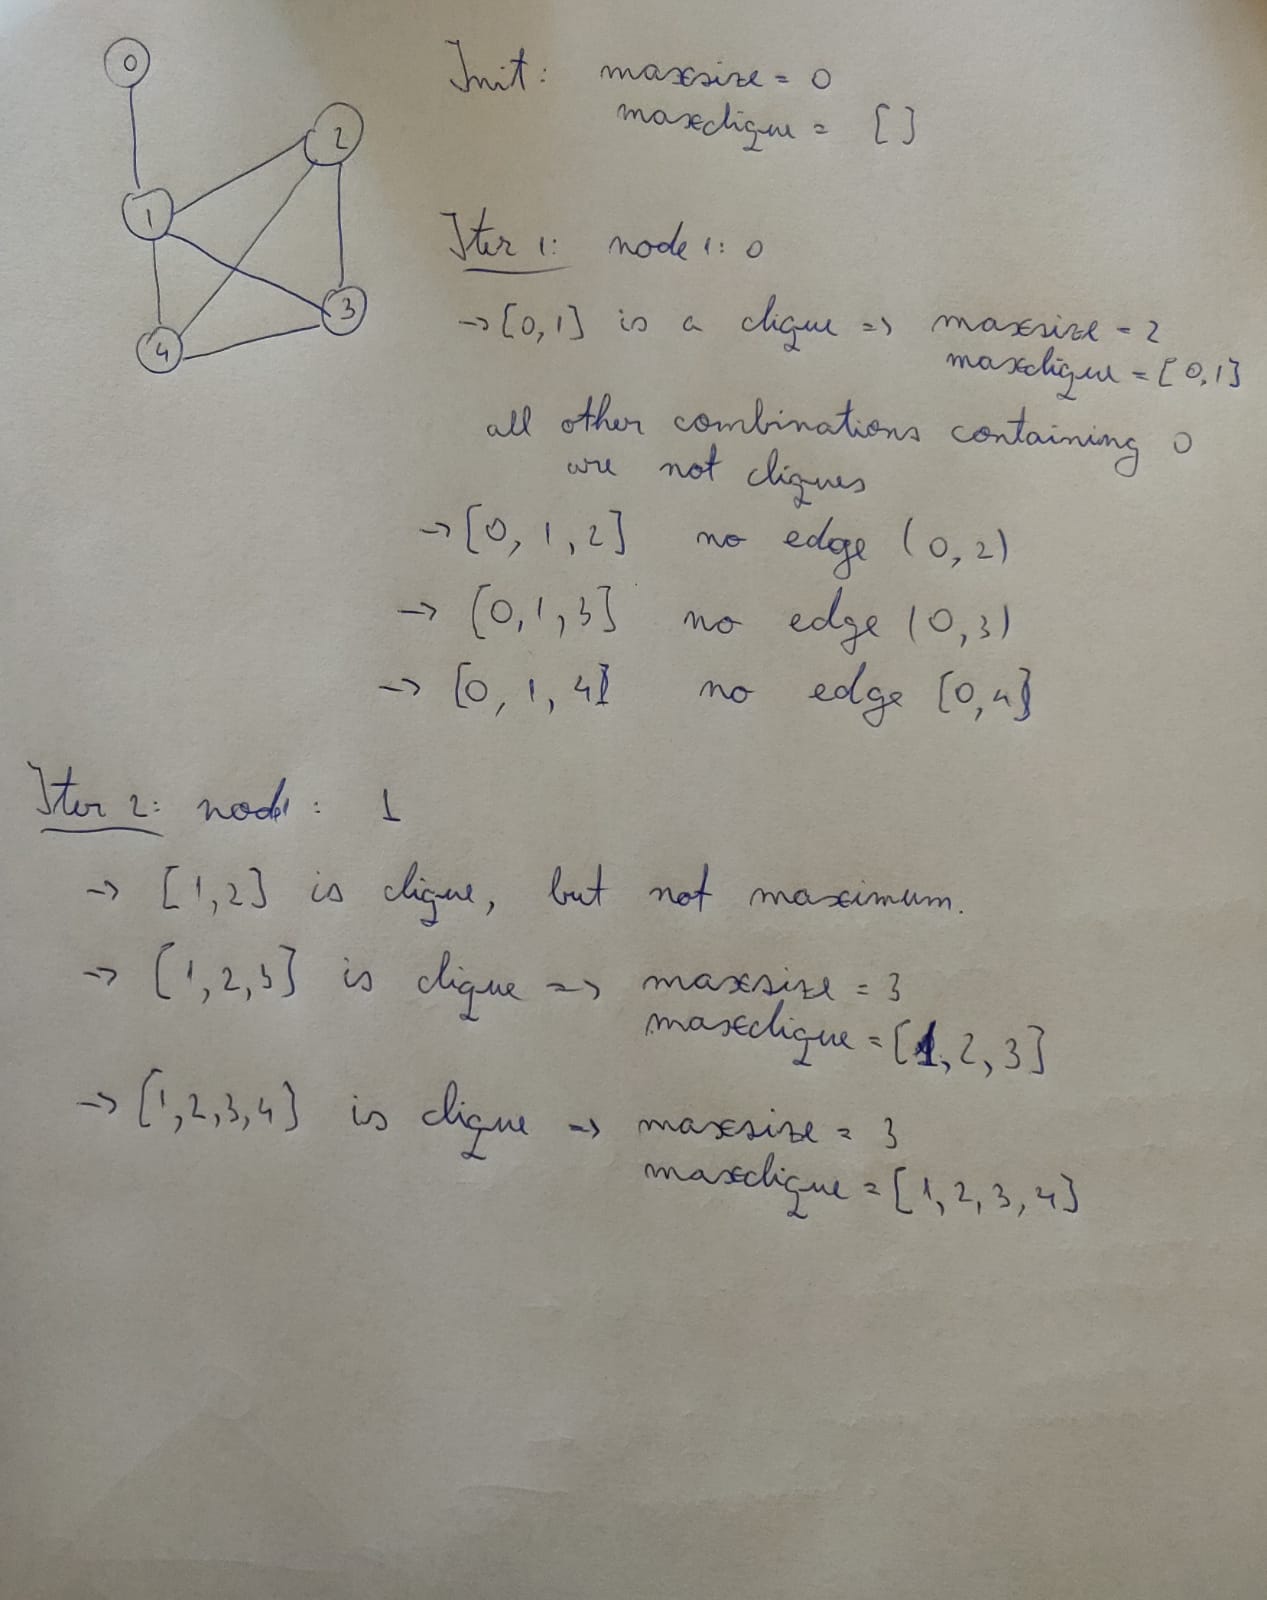 0
2
1
3
4
Init: maxsize = 0
maxclique = []
Iter 1: node 1: 0
→ [0,1] is a clique => maxsize = 2
maxclique = [0,1]
all other combinations containing 0
are not cliques
→ [0, 1, 2] no edge (0, 2)
→ [0,1,3] no edge (0,3)
→ [0, 1, 4] no edge [0,4]
Iter 2: node : 1
→ [1,2] is clique, but not maximum.
→ [1,2,3] is clique => maxsize = 3
maxclique = [1, 2, 3]
→ [1,2,3,4] is clique => maxsize = 3
maxclique = [1, 2, 3, 4]